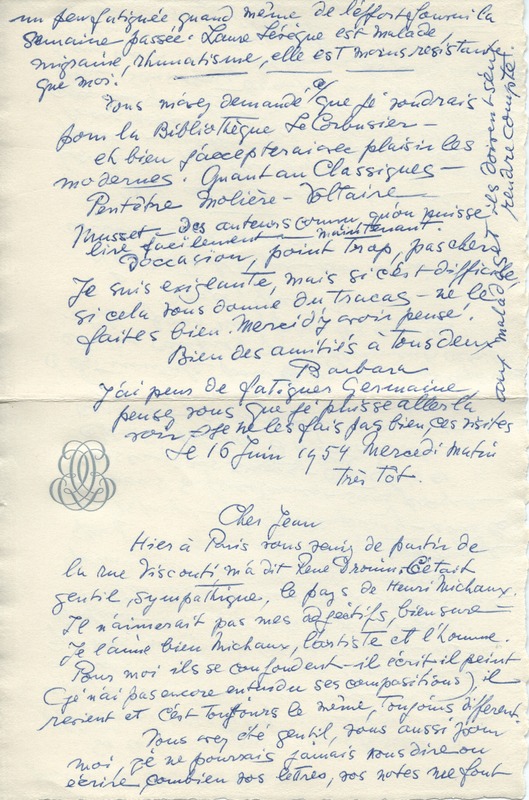 un peu fatiguée quand même de l'effort fourni la
semaine passée. Laure Lévêque est malade,
migraine, rhumatisme, elle est moins resistante
que moi!
Vous m'avez demandé ce que je voudrais
pour la Bibliothèque Le Corbusier –
eh bien j'accepterai avec plaisir les
modernes. Quant au Classiques –
Peutêtre Molière – Voltaire –
Musset – des auteurs comme qu'on puisse
lire facilement – maintenant.
D'occasion, point trop, pas chers
Je suis exigeante, mais si c'est difficile,
si cela vous donne du tracas – ne le
faites bien. Merci d'y avoir pensé.
Bien des amitiés à tous deux
Barbara
J'ai peur de fatiguer Germaine
pensez vous que je puisse aller la
voir je ne les fais pas bien ces visites
aux malades et ils doivent s'en
rendre compte.
Le 16 Juin 1954 Mercredi matin
très tot.
Cher Jean
Hier à Paris vous veniez de partir de
la rue Visconti m'a dit René Drouin. C'était
gentil, sympathique, le pays de Henri Michaux.
Il n'aimerait pas mes adjectifs, bien sure –
Je l'aime bien Michaux, l'artiste et l'homme.
Pour moi ils se confondent – il écrit il peint
(je n'ai pas encore entendu ses compositions) il
revient et c'est toujours le même, toujours different.
Vous avez été gentil, vous aussi pour
moi, je ne pourrais jamais vous dire ou
écrire combien vos lettres, vos notes me font